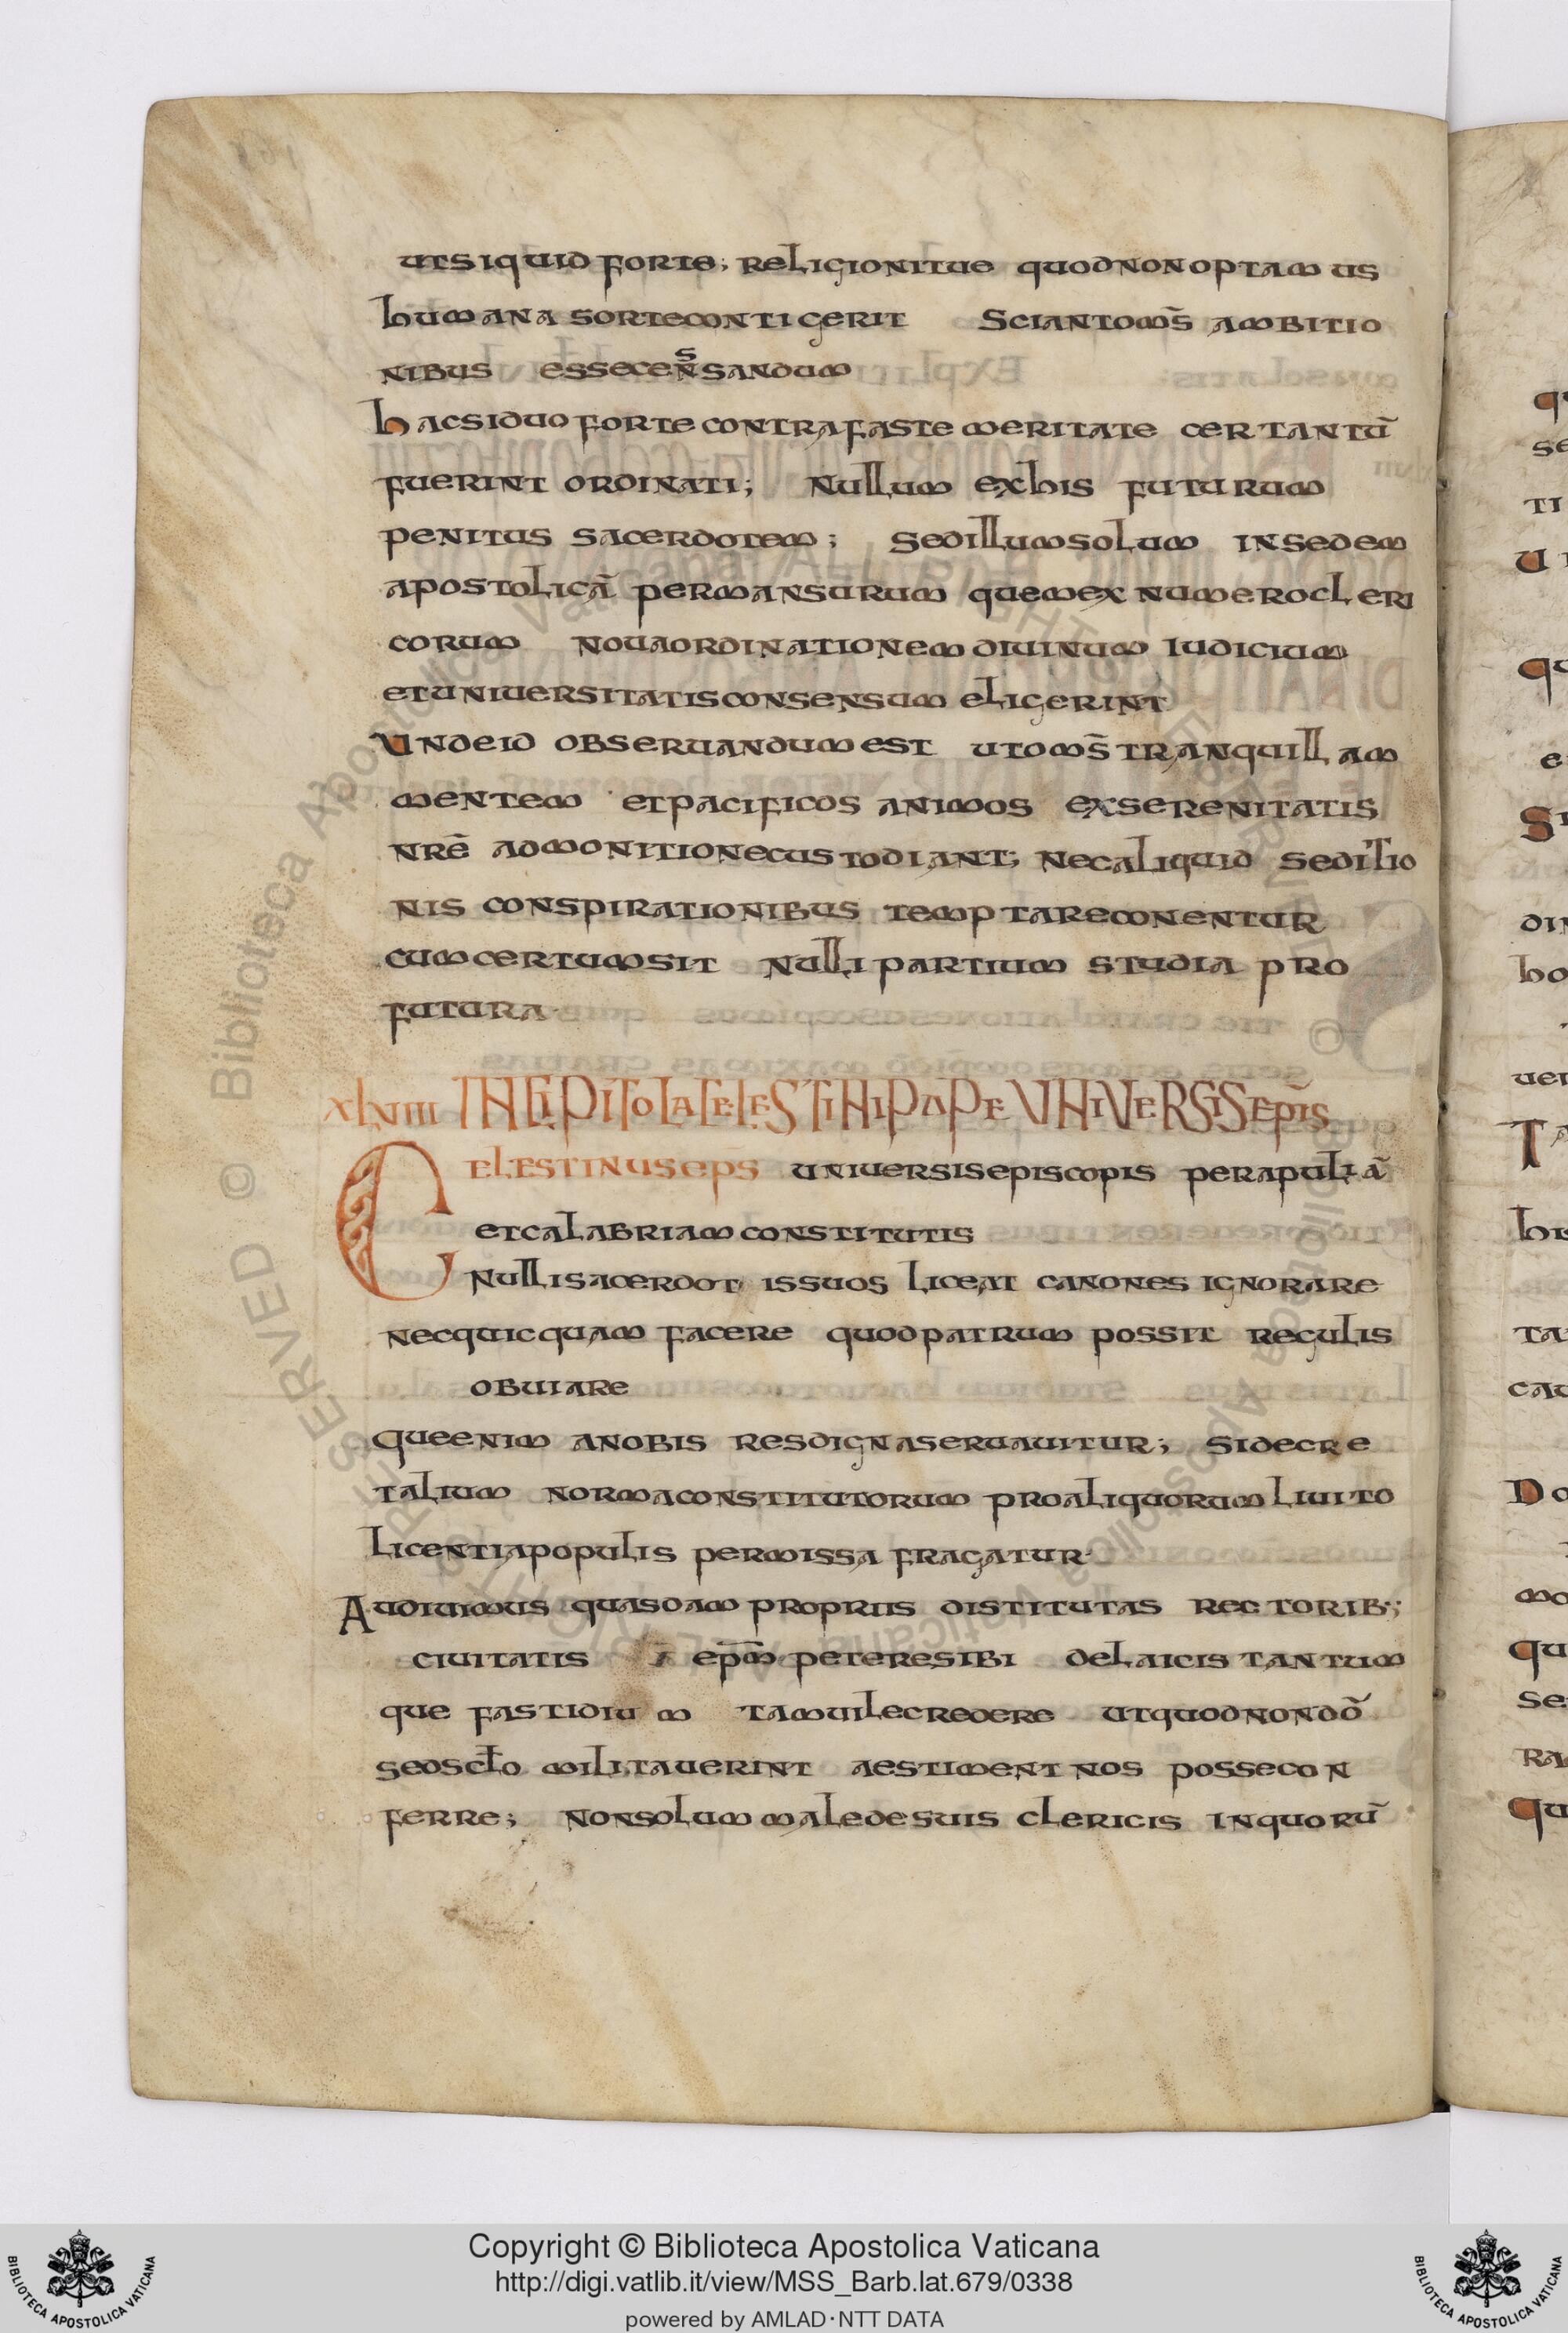 utsiquid forte; religionitue quodnonoptamus
humana sortecontigerit Sciantom̄s ambitio
nibus essecen̄ssandum
hacsiduo forte contrafaste meritate certantū
fuerint ordinati; Nullum exhis futurum
penitus sacerdotem; sedillumsolum insedem
apostolicā permansurum quemex numerocleri
corum novaordinationem divinum iudicium
etuniversitatisconsensum eligerint
Undeid observandumest utom̄s tranquillam
mentem etpacificos animos exserenitatis
nrē admonitionecustodiant; necaliquid seditio
nis conspirationibus temptareconentur
cumcertumsit nulli partium studia pro
futura
xlviiii INCIPITOLACELESTINIPAPE UNIVERSISEPIS̄
CELESTINUSep̄s universisepiscopis perapuliā
etcalabriamconstitutis
Nullisacerdotissuos liceat canones ignorare
necquicquam facere quodpatrum possit regulis
obviare
Queenim anobis resdignaservavitur; sidecre
talium normaconstitutorum proaliquorumlivito
licentiapopulis permissa fragatur
Audivimus quasdam propriis distitutas rectorib;
civitatis ep̄m peteresibi delaicis tantum
que fastidium tamvilecredere utquodnondō
sedsc̄lo militaverint aestiment nos possecon
ferre; nonsolummaledesuis clericis inquorū
Copyright © Biblioteca Apostolica Vaticana
http://digi.vatlib.it/view/MSS_Barb.lat.679/0338
powered by AMLAD·NTT DATA
BIBLIOTECA APOSTOLICA VATICANA
BIBLIOTECA APOSTOLICA VATICANA